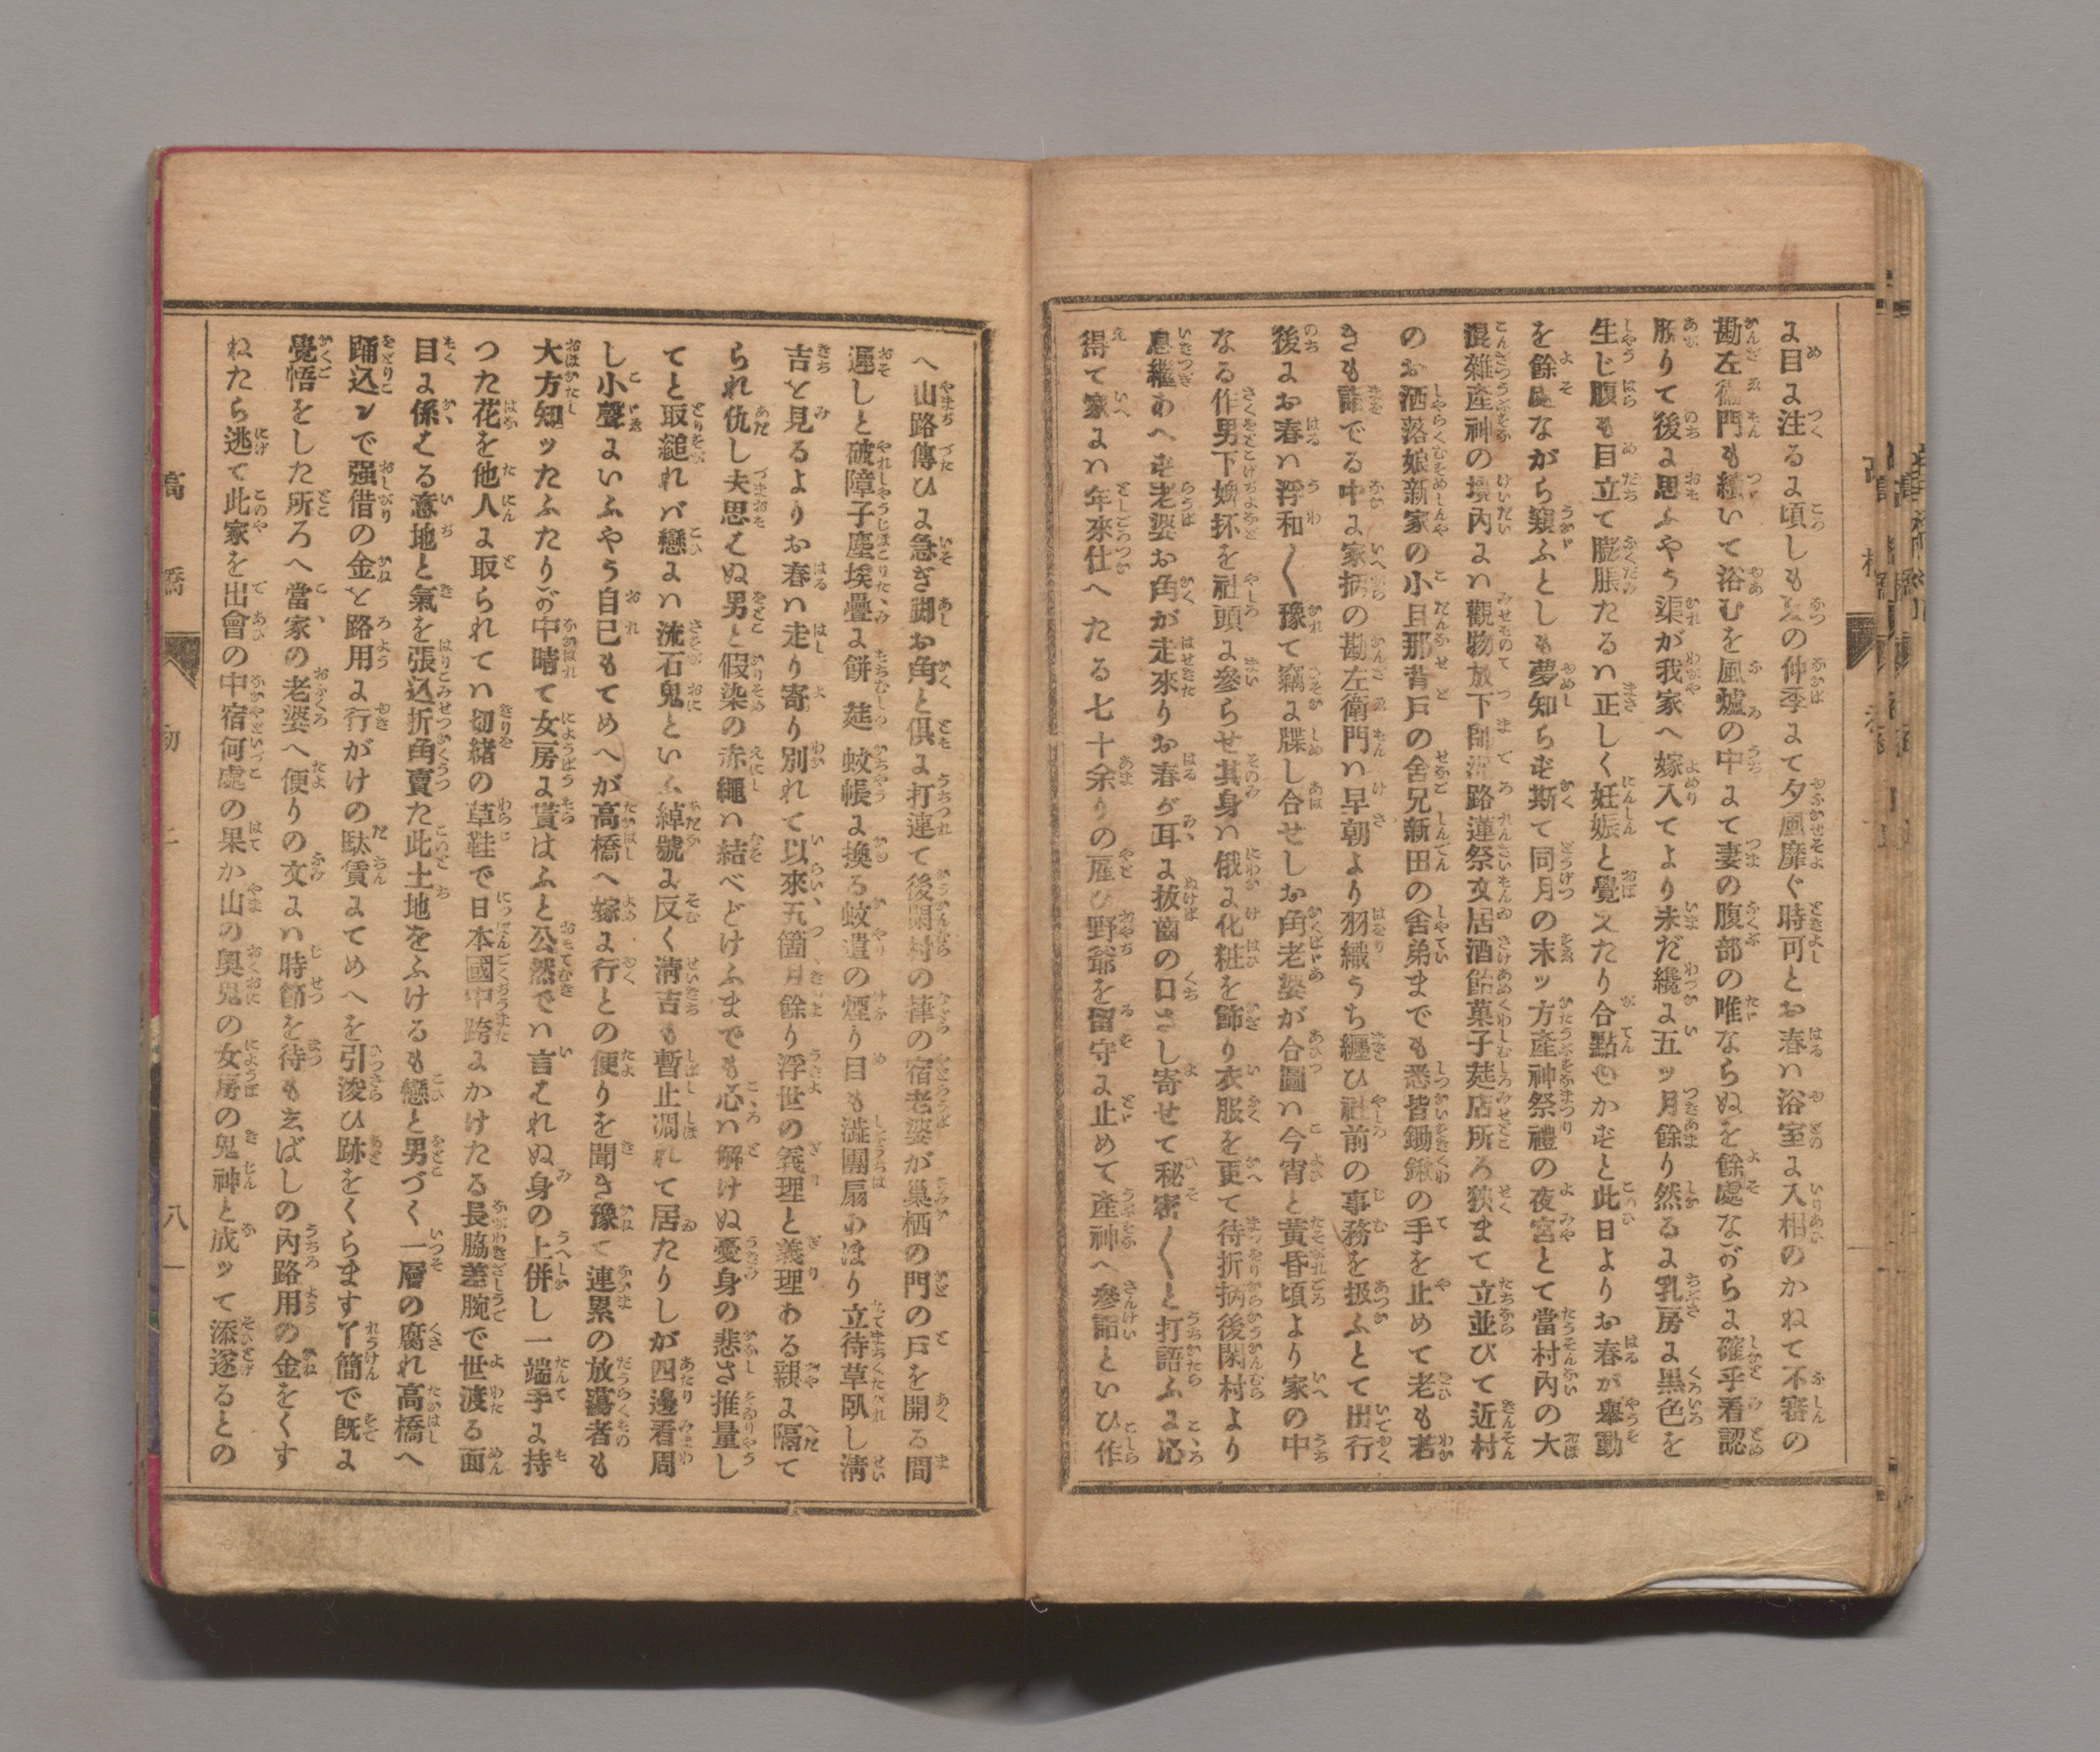 よ目よ注るよ頃しも夏の仲季よて夕風靡ぐ時可とお春ハ浴室よ入相のかねて不審の
勘左衞門も續いて浴むを風爐の中よて妻の腹部の唯ならぬを餘處ながらよ確乎看認
賑りて後よ思ふやう渠が我家へ嫁入てより未だ纔よ五ッ月餘り然るよ乳房よ黒色を
生じ腹も目立て膨脹たるハ正しく妊娠と覺えたり合點ゆかずと此日よりお春が擧動
を餘處ながら窺ふとしも夢知らず斯て同月の末ッ方產神祭禮の夜宮とて當村內の大
混雜產神の境內よハ觀物放下師 路蓮祭文居酒飴菓子莚店所ろ狹まて立並びて近村
のお洒落娘新家の小旦那背戸の舍兄新田の舍弟までも悉皆鋤鍬の手を止めて老も若
きも詣でる中よ家柄の勘左衛門ハ早朝より羽織うち纏ひ社前の事務を扱ふとて出行
後よお春ハ浮和〱豫て竊よ牒し合せしお角老婆が合圖ハ今宵と黃昏頃より家の中
なる作男下婢抔を社頭よ參らせ其身ハ俄よ化粧を飾り衣服を更て待折柄後閑村より
息繼あへず老婆お角が走來りお春が耳よ拔齒の口さし寄せて秘密〱と打語ふよ応
得て家よハ年來仕へたる七十余りの雇ひ野爺を留守よ止めて產神へ參詣といひ作
へ山路傳ひよ急ぎ脚お角と俱よ打連て後閑村の 葎の宿老婆が巢栖の門の戸を開る間
遲しと破障子塵埃疊よ餅莚蚊帳よ換る蚊遣の煙り目も澁團扇あほり立待草臥し淸
吉と見るよりお春ハ走り寄り別れて以來五箇月餘り浮世の義理と義理ある親よ隔て
られ仇し夫思はぬ男と假染の赤繩ハ結べどけふまでも心ハ解けぬ憂身の悲さ推量し
てと取縋れバ戀よハ流石鬼といふ綽號よ反く淸吉も暫止凋れて居たりしが四邊看周
し小聲よいふやう自己もてめへが高橋へ嫁よ行との便りを聞き豫て連累の放蕩者も
大方知ッたふたりが中晴て女房よ貰はふと公然でハ言はれぬ身の上併し一端手よ持
つた花を他人よ取られてハ切緒の草鞋で日本國中跨よかけたる長脇差腕で世渡る面
目よ係はる意地と氣を張込折角賣た此土地をふけるも戀と男づく一層の腐れ高橋へ
踊込ンで强借の金と路用よ行がけの駄賃よてめへを引浚ひ跡をくらます了簡で旣よ
覺悟をした所ろへ當家の老婆へ便りの文よハ時節を待も玄ばしの內路用の金をくす
ねたら逃て此家を出會の中宿何處の果か山の奧鬼の女房の鬼神と成ッて添遂るとの
高橋 初 上 八